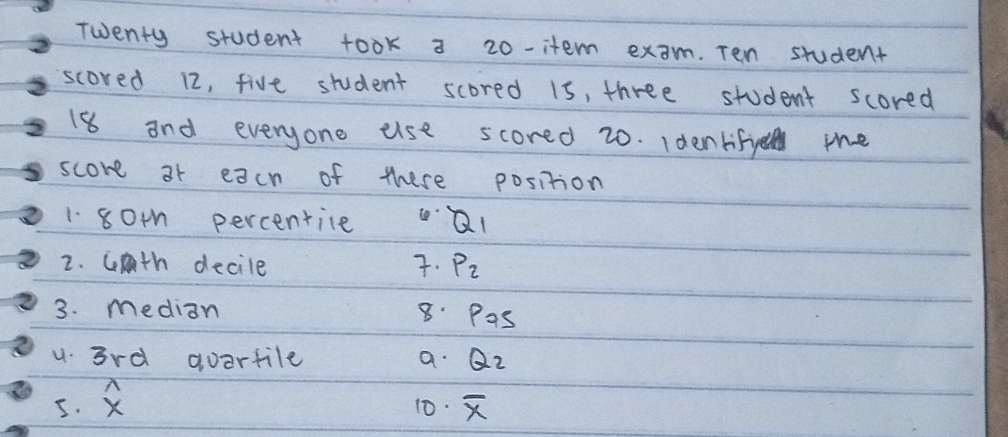 Twenty student took a 20-item exam. Ten student
scored 12, five student scored 15, three student scored
18 and everyone else scored 20. Identify the
score at each of these position
1. 80th percentile
2. 6th decile
3. median
4. 3rd quartile
5. x̂
6. Q1
7. P2
8. P95
9. Q2
10. x̄